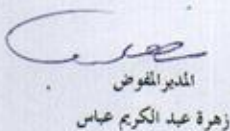 المدير المفوض
زهرة عبد الكريم عباس